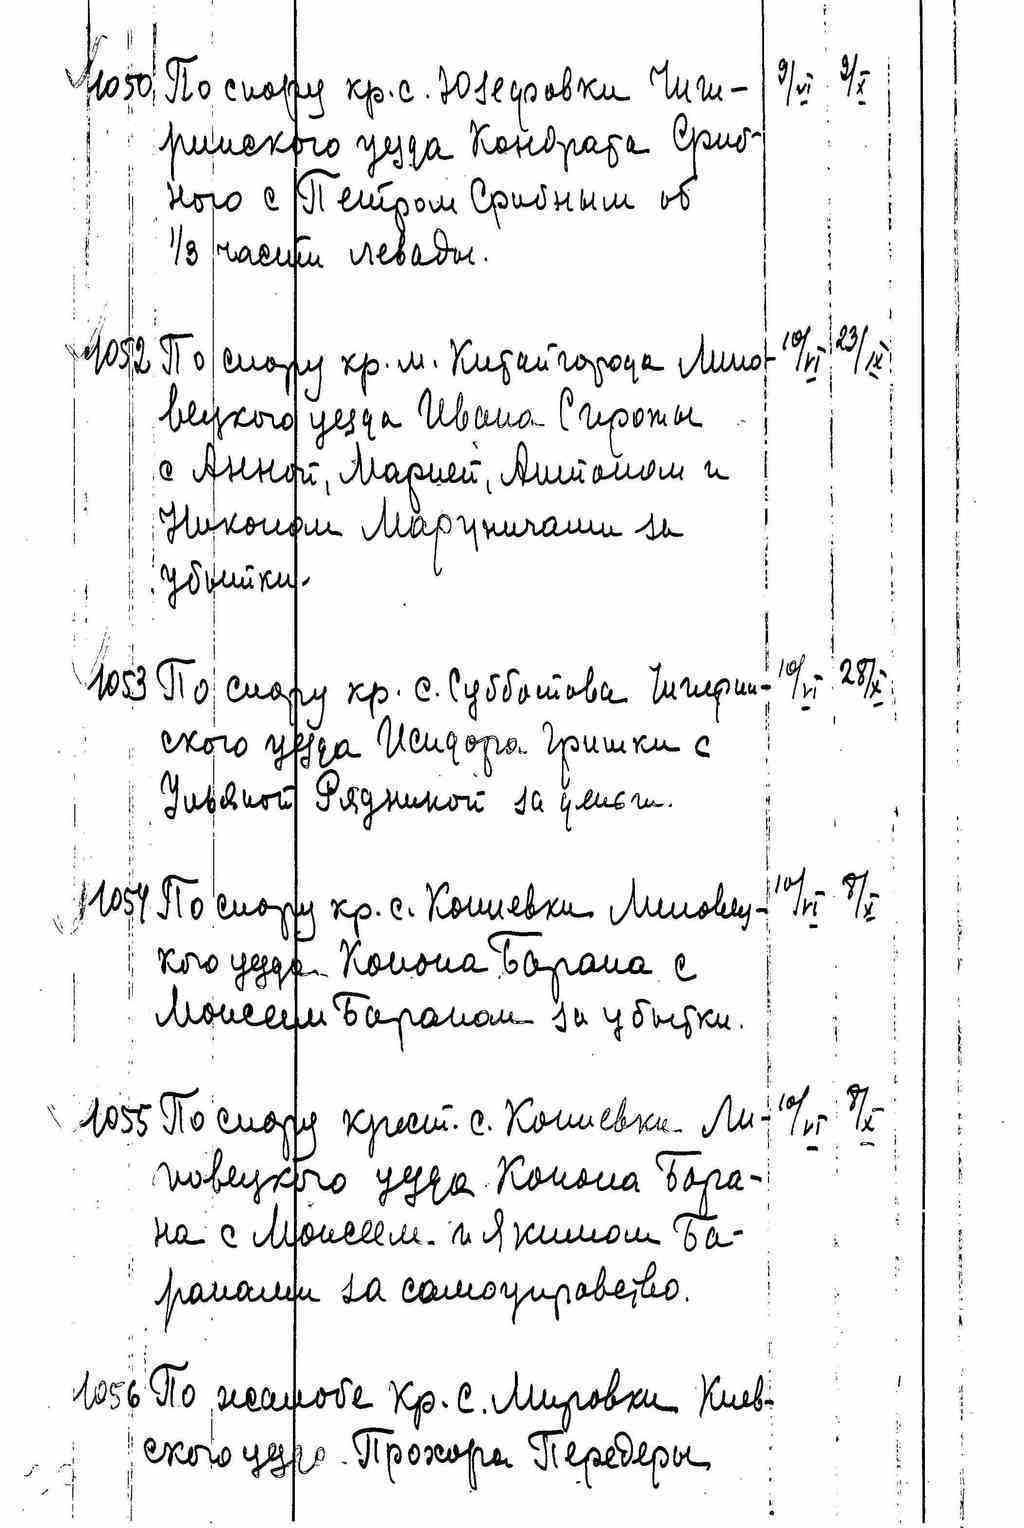 1050 По спору кр. с. Юзефовки Чиги- 9/VI 9/X
ринского уезда Кондрата Сриб-
ного с Петром Срибным об
1/3 части левады.
1052 По спору кр. м. Китайгорода Липо- 10/VI 23/IX
вецкого уезда Ивана Сирожы
с Анной, Марией, Антоном и
Никоном Маруничами за
убытки.
1053 По спору кр. с. Субботова Чигирин- 10/VI 28/X
ского уезда Исидора Гришки с
Ульяной Рядниной за деньги.
1054 По спору кр. с. Кошевки Липовец- 10/VI 8/X
кого уезда Конона Барана с
Моисеем Бараном за убытки.
1055 По спору крест. с. Кошевки Ли- 10/VI 8/X
повецкого уезда Конона Бара-
на с Моисеем и Якимом Ба-
ранами за самоуправство.
1056 По жалобе кр. с. Мировки Киев-
ского уезда Прохора Передеры